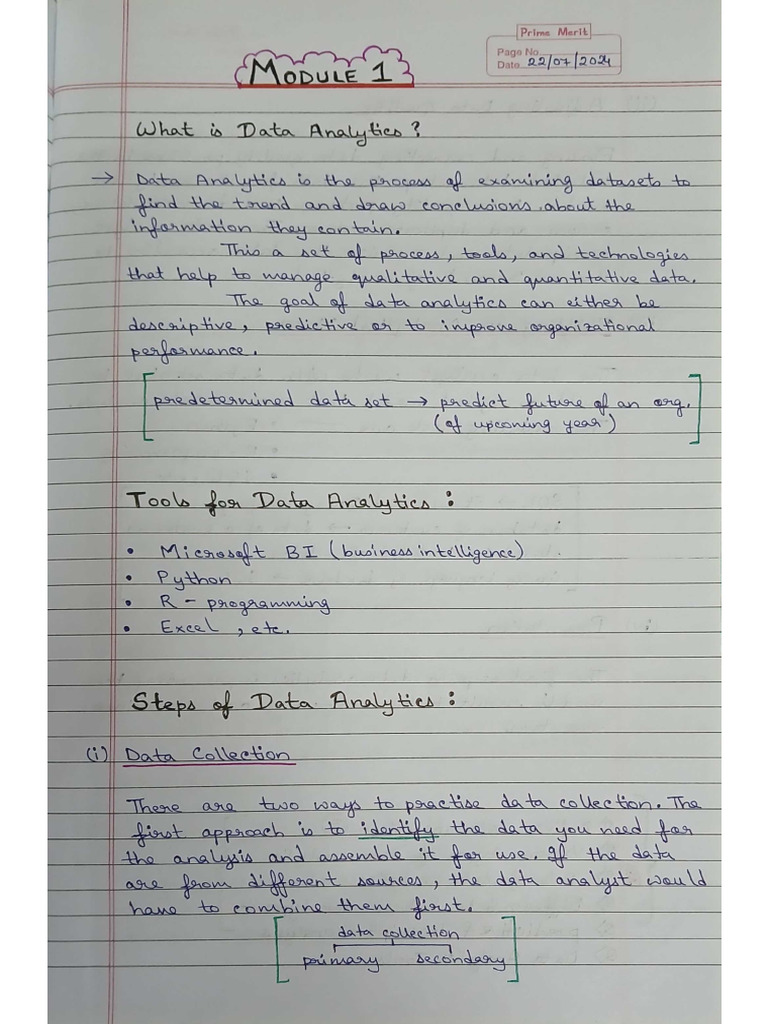 Prime Merit
Page No
Date 22/07/2024
MODULE 1
What is Data Analytics?
→ Data Analytics is the process of examining datasets to
find the trend and draw conclusions about the
information they contain.
This a set of process, tools, and technologies
that help to manage qualitative and quantitative data.
The goal of data analytics can either be
descriptive, predictive or to improve organizational
performance.
predetermined data set → predict future of an org.
(of upcoming year)
Tools for Data Analytics :
• Microsoft BI (business intelligence)
• Python
• R - programming
• Excel, etc.
Steps of Data Analytics :
(i) Data Collection
There are two ways to practise data collection. The
first approach is to identify the data you need for
the analysis and assemble it for use. If the data
are from different sources, the data analyst would
have to combine them first.
data collection
primary secondary